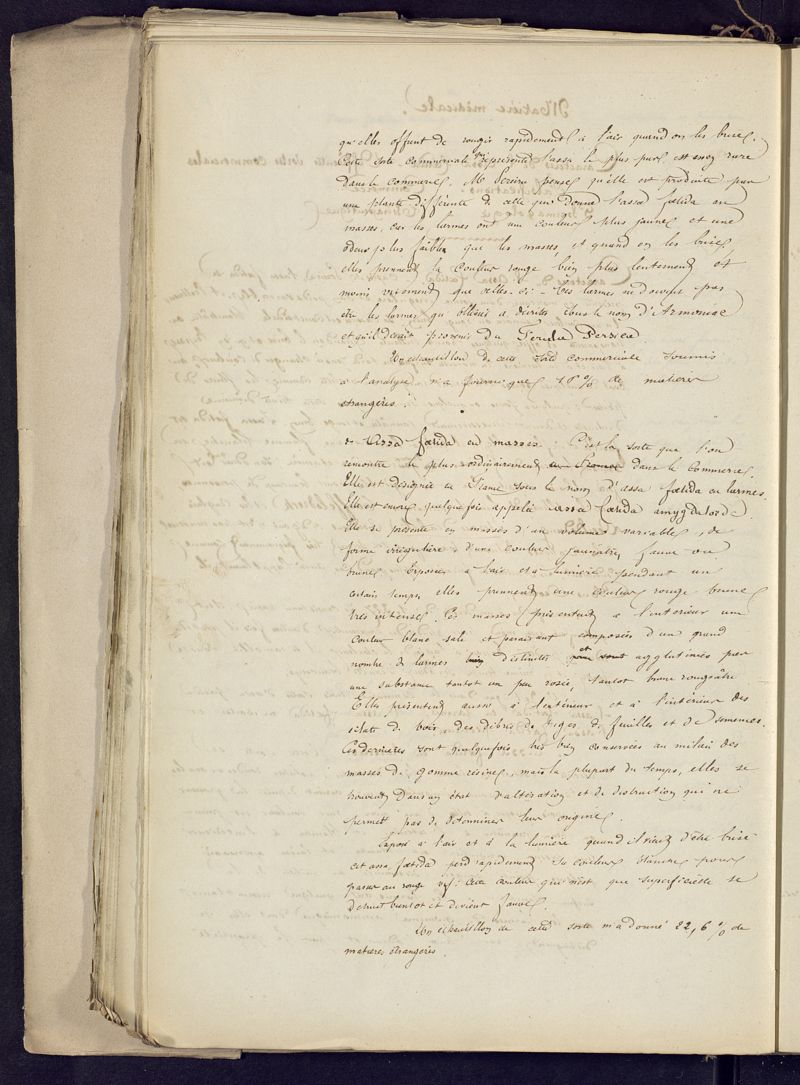 qu'elles offrent de rougir rapidement à l'air quand on les brise.
Cette sorte commerciale qui représente l'assa le plus pur est assez rare
dans le commerce. M. Pereira pense qu'elle est produite par
une plante différente de celle que donne l'assa fœtida en
masses, car les larmes ont une couleur plus jaune et une
odeur plus faible que les masses, et quand on les brise,
elles prennent la couleur rouge bien plus lentement et
moins vivement que celles-ci. Ces larmes ne doivent pas
être les larmes qu' a décrites sous le nom d'Armoniac
et qu'il devait provenir du Ferula Persica.
Un échantillon de cette sorte commerciale soumis
à l'analyse m'a fourni que 16 % de matières
étrangères.
2o Assa fœtida en masses. C'est la sorte que l'on
rencontre le plus ordinairement en France dans le commerce.
Elle est designée en France sous le nom d'assa fœtida en larmes.
Elle est encore quelquefois appelée assa fœtida amygdaloïde.
Elle se présente en masses d'un volume variable, de
forme irrégulière, d'une couleur jaunâtre, fauve ou
brune. Exposées à l'air et à la lumière pendant un
certain temps, elles prennent une couleur rouge brune
très intense. Ces masses présentent à l'intérieur une
couleur blanc sale et paraissant composées d'un grand
nombre de larmes bien distinctes et agglutinées par
une substance tantot un peu rosée, tantot brune rougeâtre.
Elles présentent aussi à l'extérieur et à l'intérieur des
éclats de bois, des débris de tiges, de feuilles et de semences.
Ces dernières sont quelquefois très bien conservées au milieu des
masses de gomme résine, mais la plupart du temps, elles se
trouvent dans un état d'altération et de destruction qui ne
permet pas de déterminer leur origine.
Exposé à l'air et à la lumière quand il vient d'être brisé
cet assa fœtida perd rapidement sa couleur blanche pour
passer au rouge vif: cette couleur qui n'est que superficielle se
détruit bientot et devient fauve.
Un échantillon de cette sorte m'a donné 22,6 % de
matières étrangères.